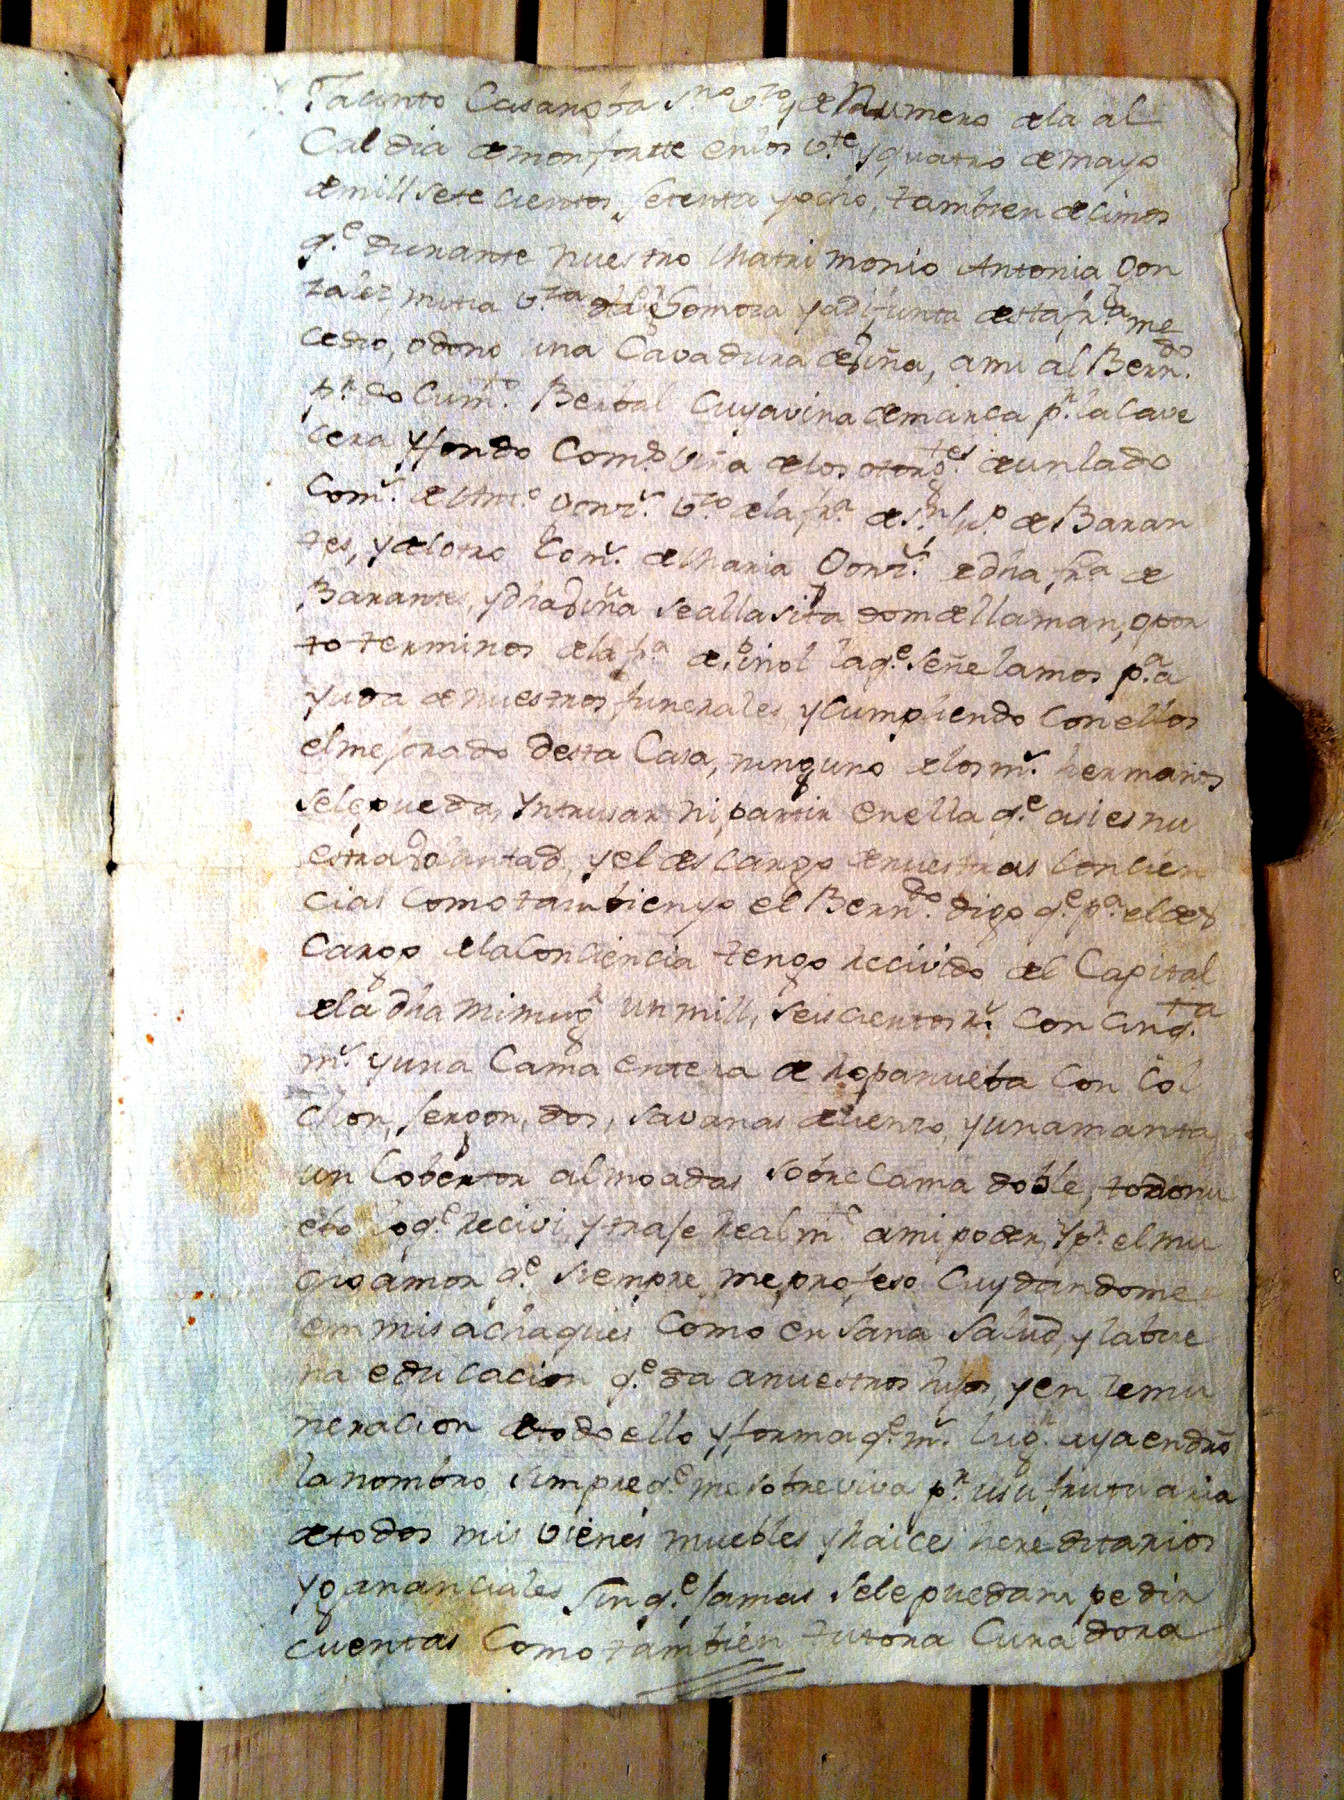 Jacinto Casanoba s.no v.zo y de Numero de la al
Caldia de monfortte en los v.te y quatro de mayo
de mill sete cientos, setenta y ocho, tambien decimos
q.e durante nuestro Matrimonio Antonia Gon
zalez, mi tia v.za Somoza ya difunta desta fr.a me
cedio, o dono una Cavadura de viña, a mi al Bern.do
p.r do Cum.o Berbal cuya vina demarca p.r la Cave
cera y fondo Com.o viña de los otorg.tes de un lado
Com.r de Ant.o Gonz.r v.zo de la fr.a de S.n Ju.o de Baran
tes, y del otro Com.r de Maria Gonz.r de dha fr.a de
Barantes, y dha viña se alla sita dom de llaman, o por
to terminos de la f.a de viñol la q.e señelamos p.a a
yuda de nuestros funerales, y cumpliendo con ellos
el mejorado desta Casa, ninguno de los m.r hermanos
se le pueda, yntrusar ni partir en ella q.e asi es nu
estra voluntad, y el descargo de nuestras concien
cias como tambien yo el Bern.do digo q.e p.a el des
cargo de la Conciencia tengo recivido del Capital
de la dha mi mug.r un mill, seiscientos r.r con cinq.ta
m.r y una Cama entera de ropa nueba con Col
chon, sergon, dos, savanas de lienzo, y una manta
un Cobertor almoadas sobre cama doble, todo nu
ebo lo q.e recivi, y traje realm.te a mi poder, y p.r el mu
cho amor q.e siempre me profeso cuydandome
em mis achaques como en sana salud, y la bue
na educacion q.e da a nuestros hijos, y en remu
neracion de todo ello y forma q.e m.r lug.r aya en dro
la nombro siempre q.e me sobreviva p.r usufrutuaria
de todos mis vienes muebles y raices hereditarios
y gananciales sin q.e jamas se le puedam pedir
cuentas como tambien tutora Curadora